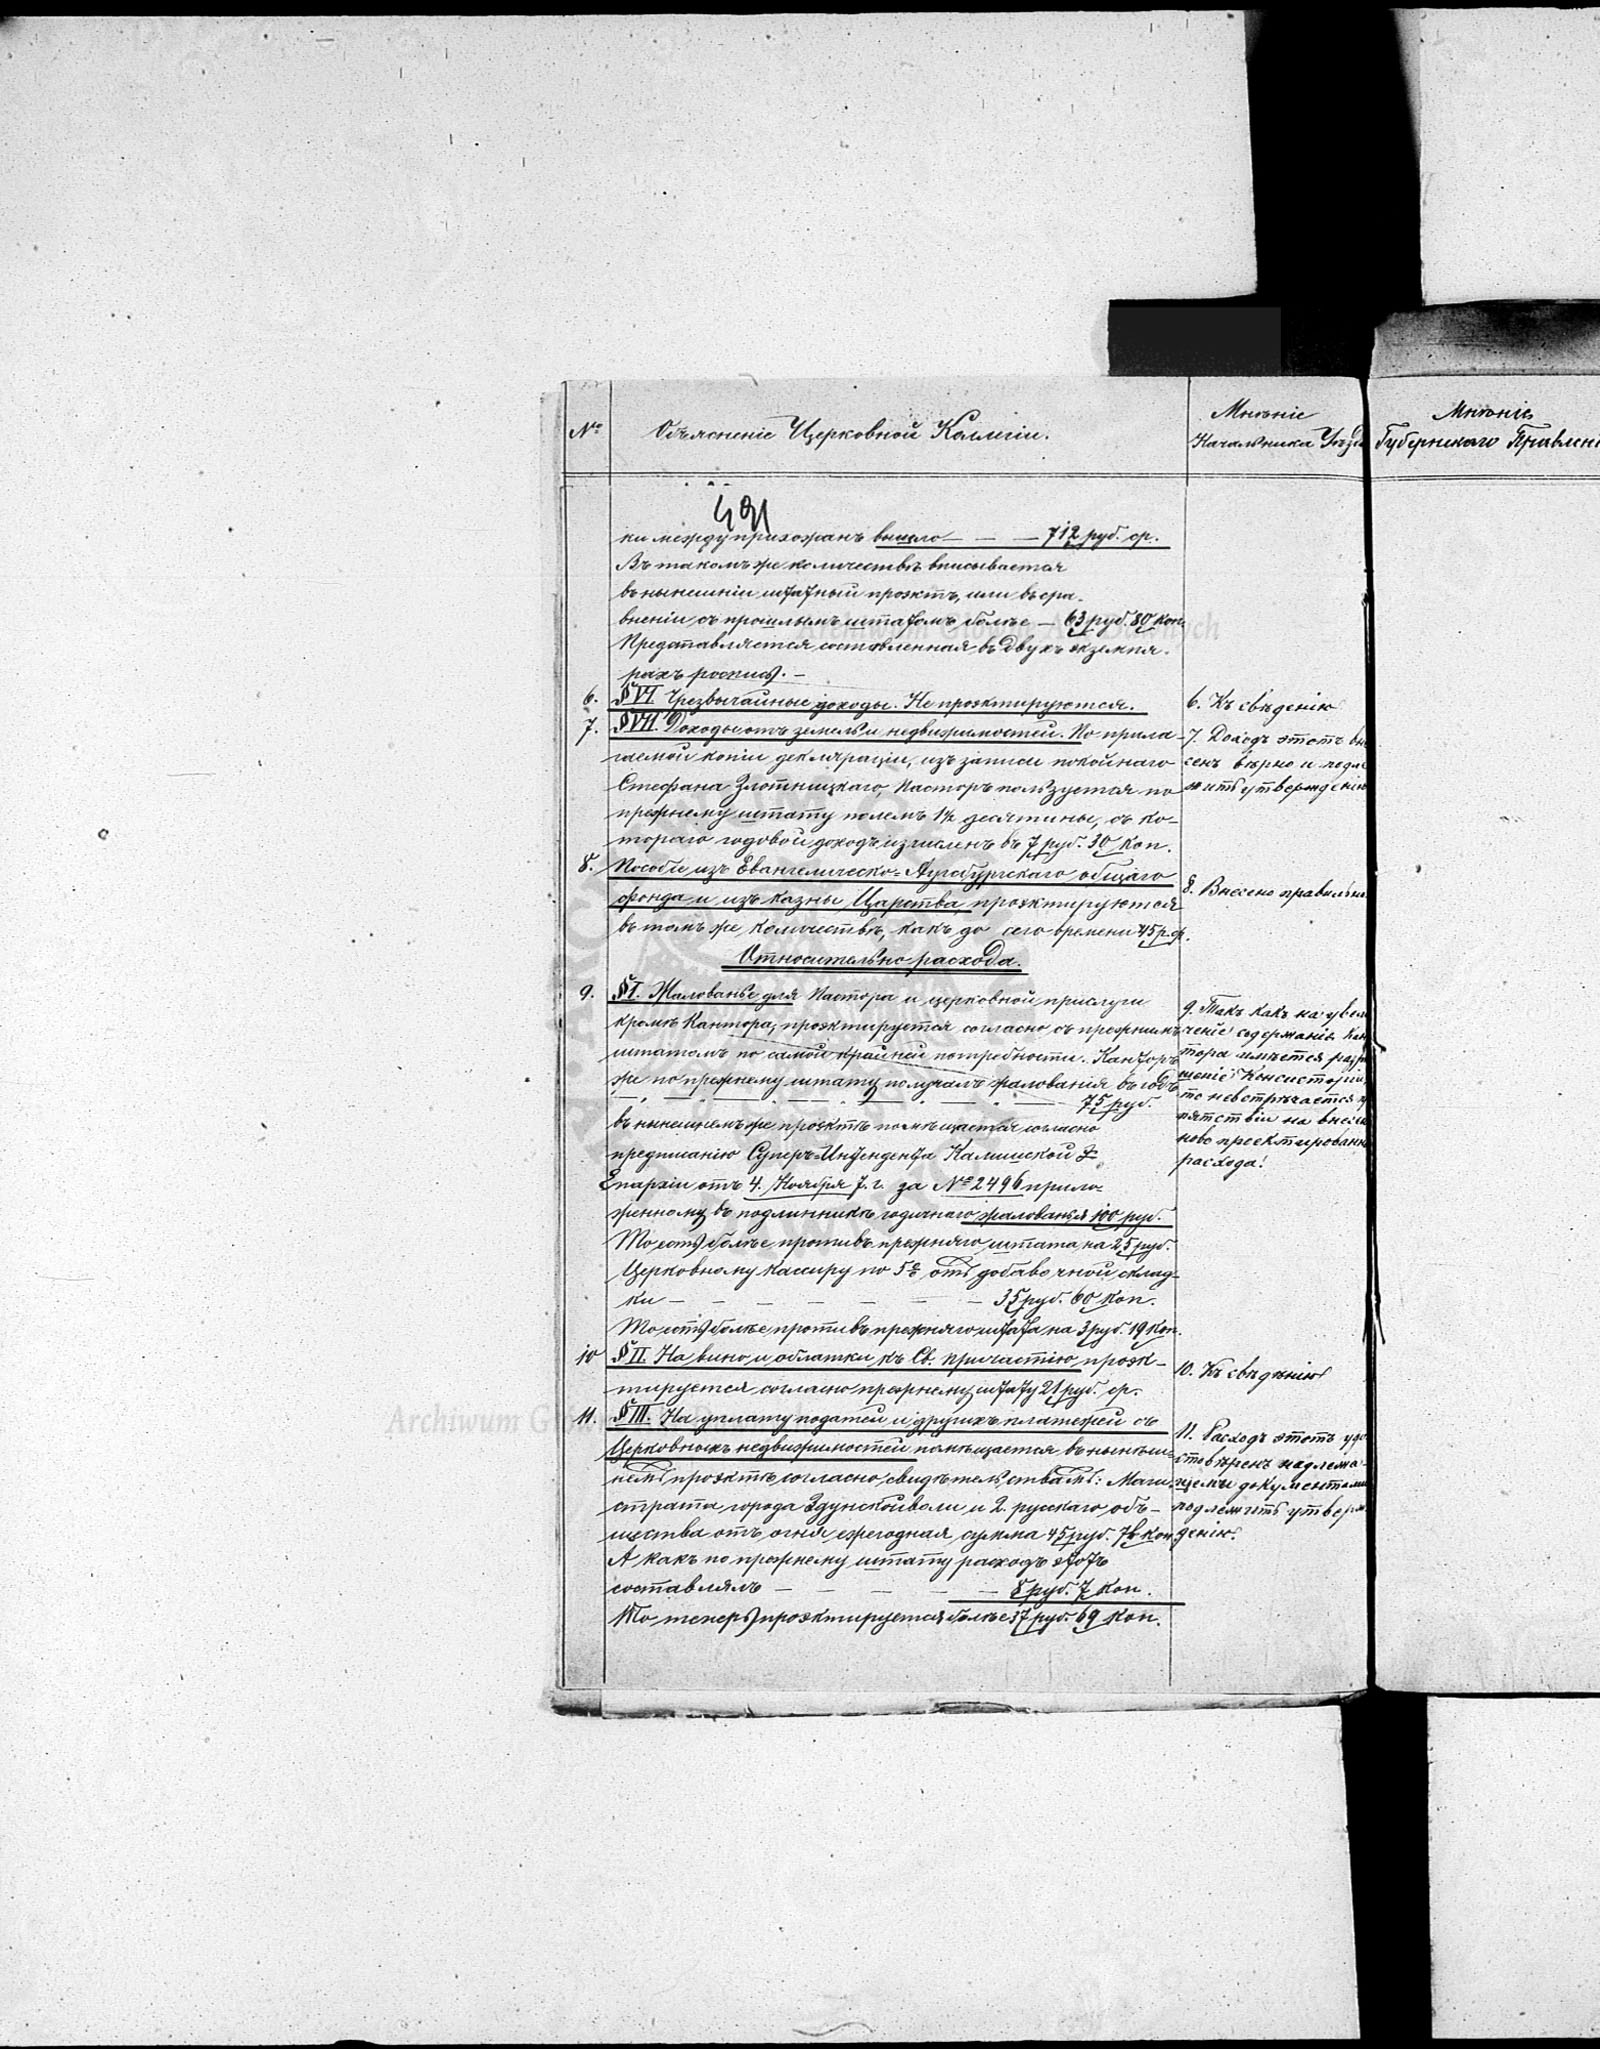 №
Объясненіе Церковной Коллегіи.
Мнѣніе
Начальника Уѣзда
Мнѣніе
Губернскаго Правлені
ки между прихожанъ вышло — — — 712 руб. ср.
Въ такомъ же количествѣ вписывается
въ нынешній штатный проэктъ, или въ сра-
вненіи съ прошлымъ штатомъ болѣе — 63 руб. 80 коп.
Представляется составленная въ двухъ экземпля-
рахъ роспись. —
6. § VI. Чрезвычайные доходы. Не проэктируются.
7. § VII. Доходы отъ земель и недвижимостей. По прила-
гаемой копіи декляраціи, изъ записи покойнаго
Стефана Злотницкаго, Пасторъ пользуется по
прежнему штату полемъ 1½ десятины, съ ко-
тораго годовой доходъ изчисленъ въ 7 руб. 30 коп.
8. Пособіи изъ Евангелическо-Аугсбургскаго общаго
фонда и изъ казны Царства, проэктируются
въ томъ же количествѣ, какъ до сего времени 45 р. ср.
Относительно расхода.
9. § I. Жалованье для Пастора и церковной прислуги
кромѣ Кантора, проэктируется согласно съ прежнимъ
штатомъ по самой крайней потребности. Канторъ
же по прежнему штату получалъ жалованія въ годъ
— — — — — — — 75 руб.
въ нынешнемъ же проэктѣ помѣщается согласно
предписанію Суперъ-Интендента Калишской
Епархіи отъ 4. Ноября т. г. за № 2496 прило-
женному въ подлинникѣ годичнаго жалованья 100 руб.
То есть болѣе противъ прежняго штата на 25 руб.
Церковному кассиру по 5% отъ добавочной склад-
ки — — — — — — — 35 руб. 60 коп.
То есть болѣе противъ прежняго штата на 3 руб. 19 коп.
10 § II. На вино и облатки къ Св. причастію проэк-
тируется согласно прежнему штату 21 руб. ср.
11. § III. На уплату податей и другихъ платежей съ
Церковныхъ недвижимостей помѣщается въ нынѣш-
немъ проэктѣ согласно свидѣтельствамъ: Маги-
страта города Здунскойволи и 2. русскаго объ-
щества отъ огня ежегодная сумма 45 руб. 76 коп.
А какъ по прежнему штату расходъ этотъ
составлялъ — — — — — 8 руб. 7 коп.
То теперь проэктируется болѣе 37 руб. 69 коп.
6. Къ свѣденію
7. Доходъ этотъ вне
сенъ вѣрно и подле
житъ утвержденію
8. Внесено правильно
9. Такъ какъ на увели
ченіе содержанія Кан
тора имѣется разрѣ
шеніе Консисторіи
то невстрѣчается
пятствій на внесен
ново проектированн
расхода.
10. Къ свѣденію
11. Расходъ этотъ удо
стовѣренъ надлежа-
щими документами
подлежитъ утверж
денію.
Archiwum Główne Akt Dawnych